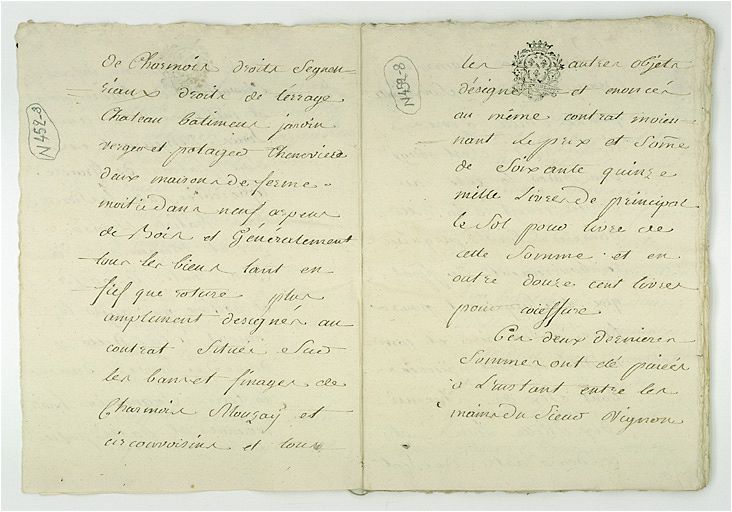 de Charmois droits Segneu-
riaux droits de terrage
Chateau batimens jardin
verger et potager Cheneviere
deux maisons de ferme
moitié dans neuf arpens
de Bois et Généralement
tous les biens tant en
fief que roture plus
amplement designés au
contrat Situés Sur
les bans et finages de
Charmois Mouzay et
circonvoisins et tous
N452-8
les autres objets
désignés et enoncés
au même contrat moien-
nant Le prix et Some
de Soixante quinze
mille Livres de principal
le Sol pour livre de
cette Somme et en
outre douze cent livres
pour coeffure
Ces deux dernieres
Sommes ont été paiées
a L'instant entre les
mains du Sieur Vignon
N452-8